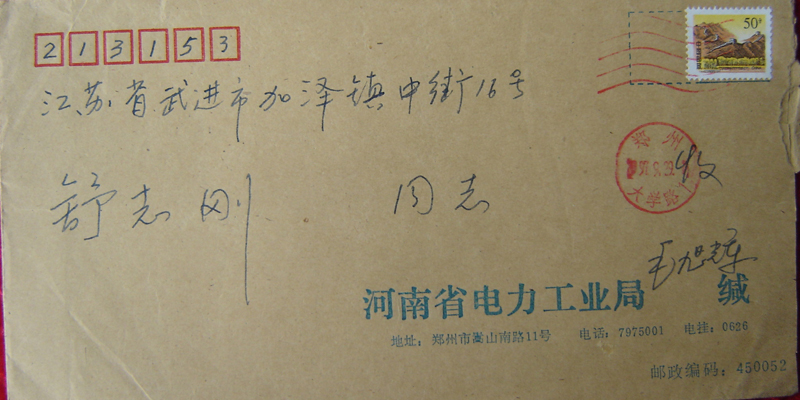 213153
50分
江苏省武进市加泽镇中街16号
郑州
大学路
收
舒志刚 同志
毛旭辉
河南省电力工业局 缄
地址：郑州市嵩山南路11号 电话：7975001 电挂：0626
邮政编码：450052